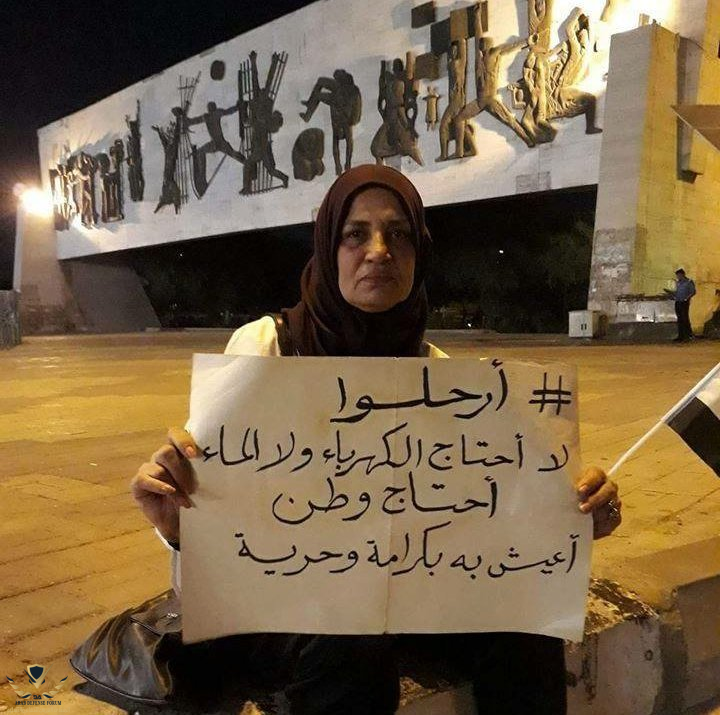 # أرحلوا
لا أحتاج الكهرباء ولا الماء
أحتاج وطن
أعيش به بكرامة وحرية
ARAB DEFENSE FORUM